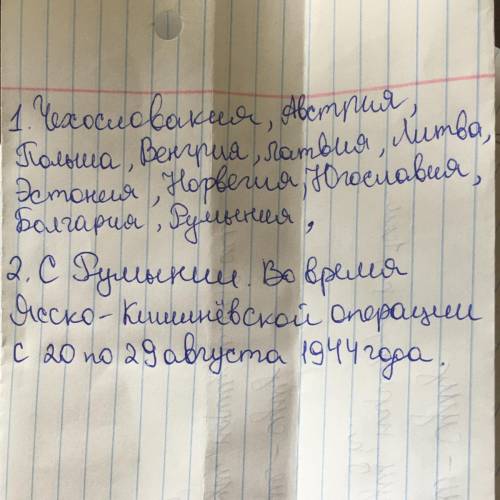 1. Чехословакия, Австрия,
Польша, Венгрия, Латвия, Литва,
Эстония, Норвегия, Югославия,
Болгария, Румыния,
2. С Румынии. Во время
Ясско-Кишинёвской операции
с 20 по 29 августа 1944 года.